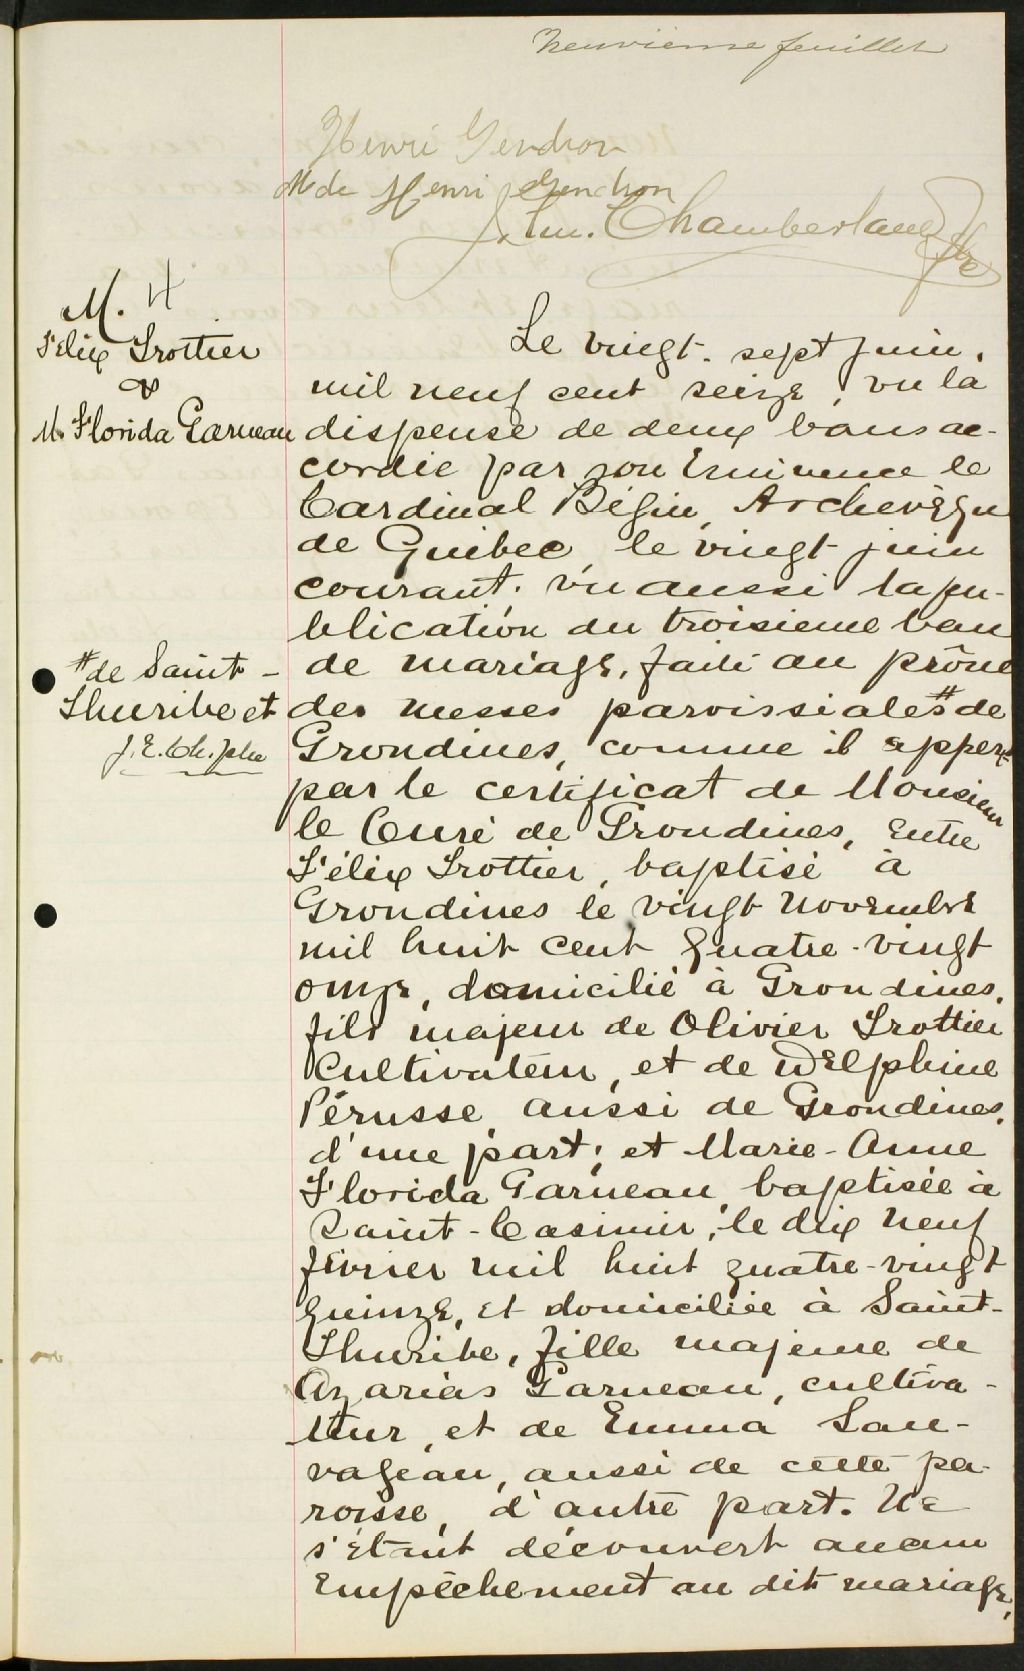 neuvième feuillet
Henri Gendron
Mde Henri Gendron
J. Em. Chamberland Ptre
M. 4
Félix Trottier
&
M. Florida Garneau
Le vingt-sept juin,
mil neuf cent seize, vu la
dispense de deux bans ac-
cordée par son Eminence le
Cardinal Bégin, Archevêque
de Québec, le vingt juin
courant; vu aussi la pu-
blication du troisième ban
de mariage, faite au prône
des messes paroissiales # de
# de Saint-
Thuribe et
J. E. Ch. ptre
Grondines, comme il appert
par le certificat de Monsieur
le Curé de Grondines, Entre
Félix Trottier, baptisé à
Grondines le vingt Novembre
mil huit cent quatre-vingt
onze, domicilié à Grondines,
fils majeur de Olivier Trottier
Cultivateur, et de Delphine
Pérusse, aussi de Grondines,
d'une part; et Marie-Anne
Florida Garneau, baptisée à
Saint-Casimir, le dix neuf
février mil huit quatre-vingt
quinze, et domiciliée à Saint-
Thuribe, fille majeure de
Azarias Garneau, cultiva-
teur, et de Emma Sau-
vageau, aussi de cette pa-
roisse, d'autre part. Ne
s'étant découvert aucun
Empêchement au dit mariage,